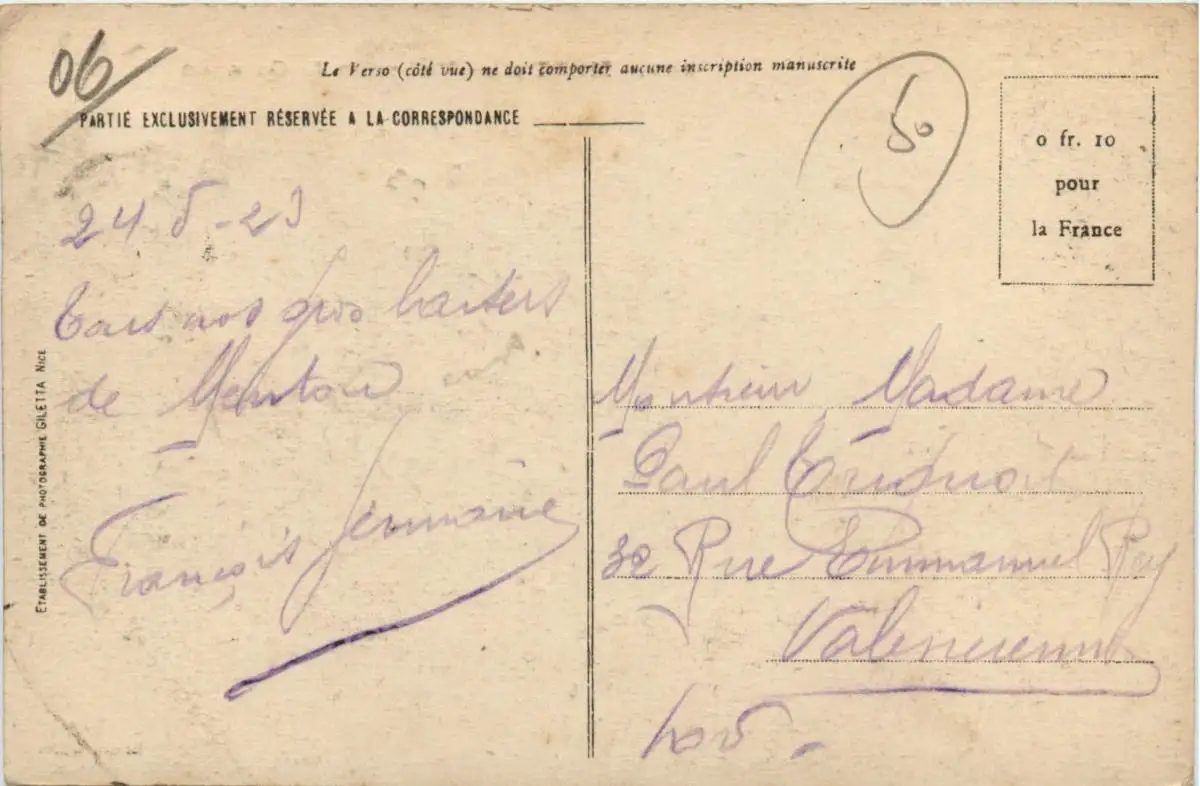 06
Le Verso (côté vue) ne doit comporter aucune inscription manuscrite
PARTIE EXCLUSIVEMENT RÉSERVÉE A LA CORRESPONDANCE
50
0 fr. 10
pour
la France
24-5-23
nos gros baisers
de Menton
François Germaine
ETABLISSEMENT DE PHOTOGRAPHIE GILETTA NICE
Monsieur Madame
Paul
32 Rue Emmanuel Rey
Valenciennes